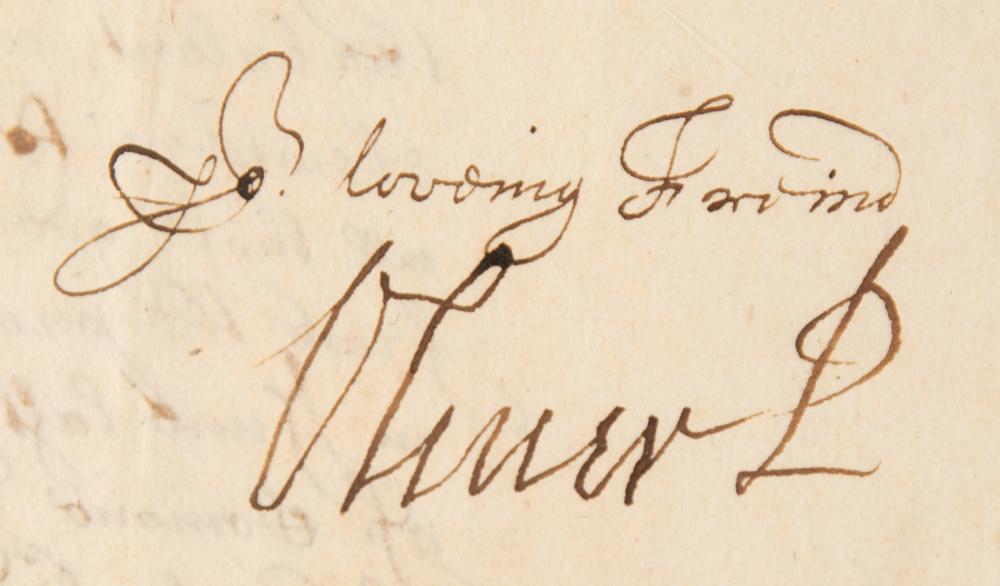 Yor loveing Freind
Oliver P